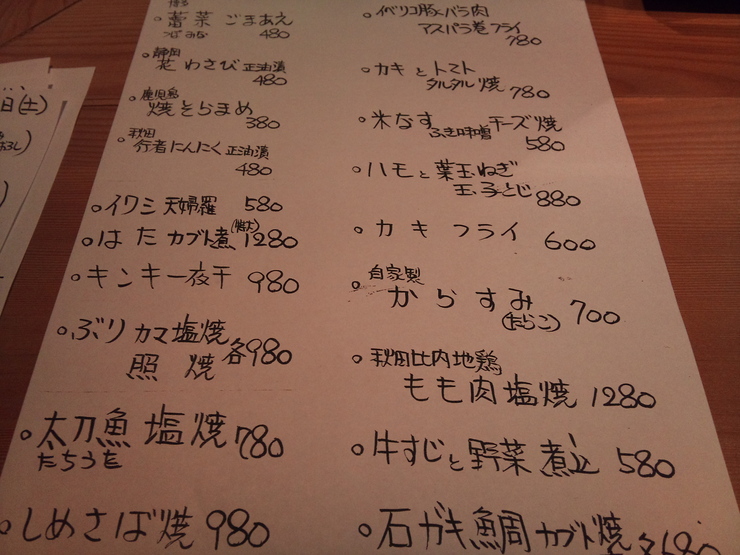 蕾菜 ごまあえ
つぼみな 480
静岡
花わさび 正油漬
480
鹿児島
焼そらまめ
380
秋田
行者にんにく 正油漬
480
イワシ 天婦羅 580
はた カブト煮 (特大) 1280
キンキ一夜干 980
ぶり カマ塩焼
照焼 各980
太刀魚 塩焼 780
たちうを
しめさば焼 980
イベリコ豚バラ肉
アスパラ巻フライ
780
カキとトマト
タルタル焼 780
米なす ふき味噌 チーズ焼
580
ハモと葉玉ねぎ
玉子とじ 880
カキフライ 600
自家製
からすみ 700
(たらこ)
秋田比内地鶏
もも肉塩焼 1280
牛すじと野菜煮込 580
石ガキ鯛 カブト焼
日(土)